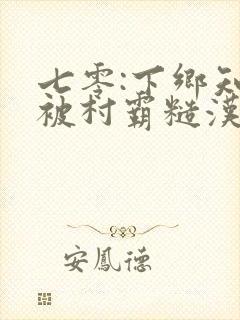 七零:下鄉知
被村霸糙漢
安鳳德